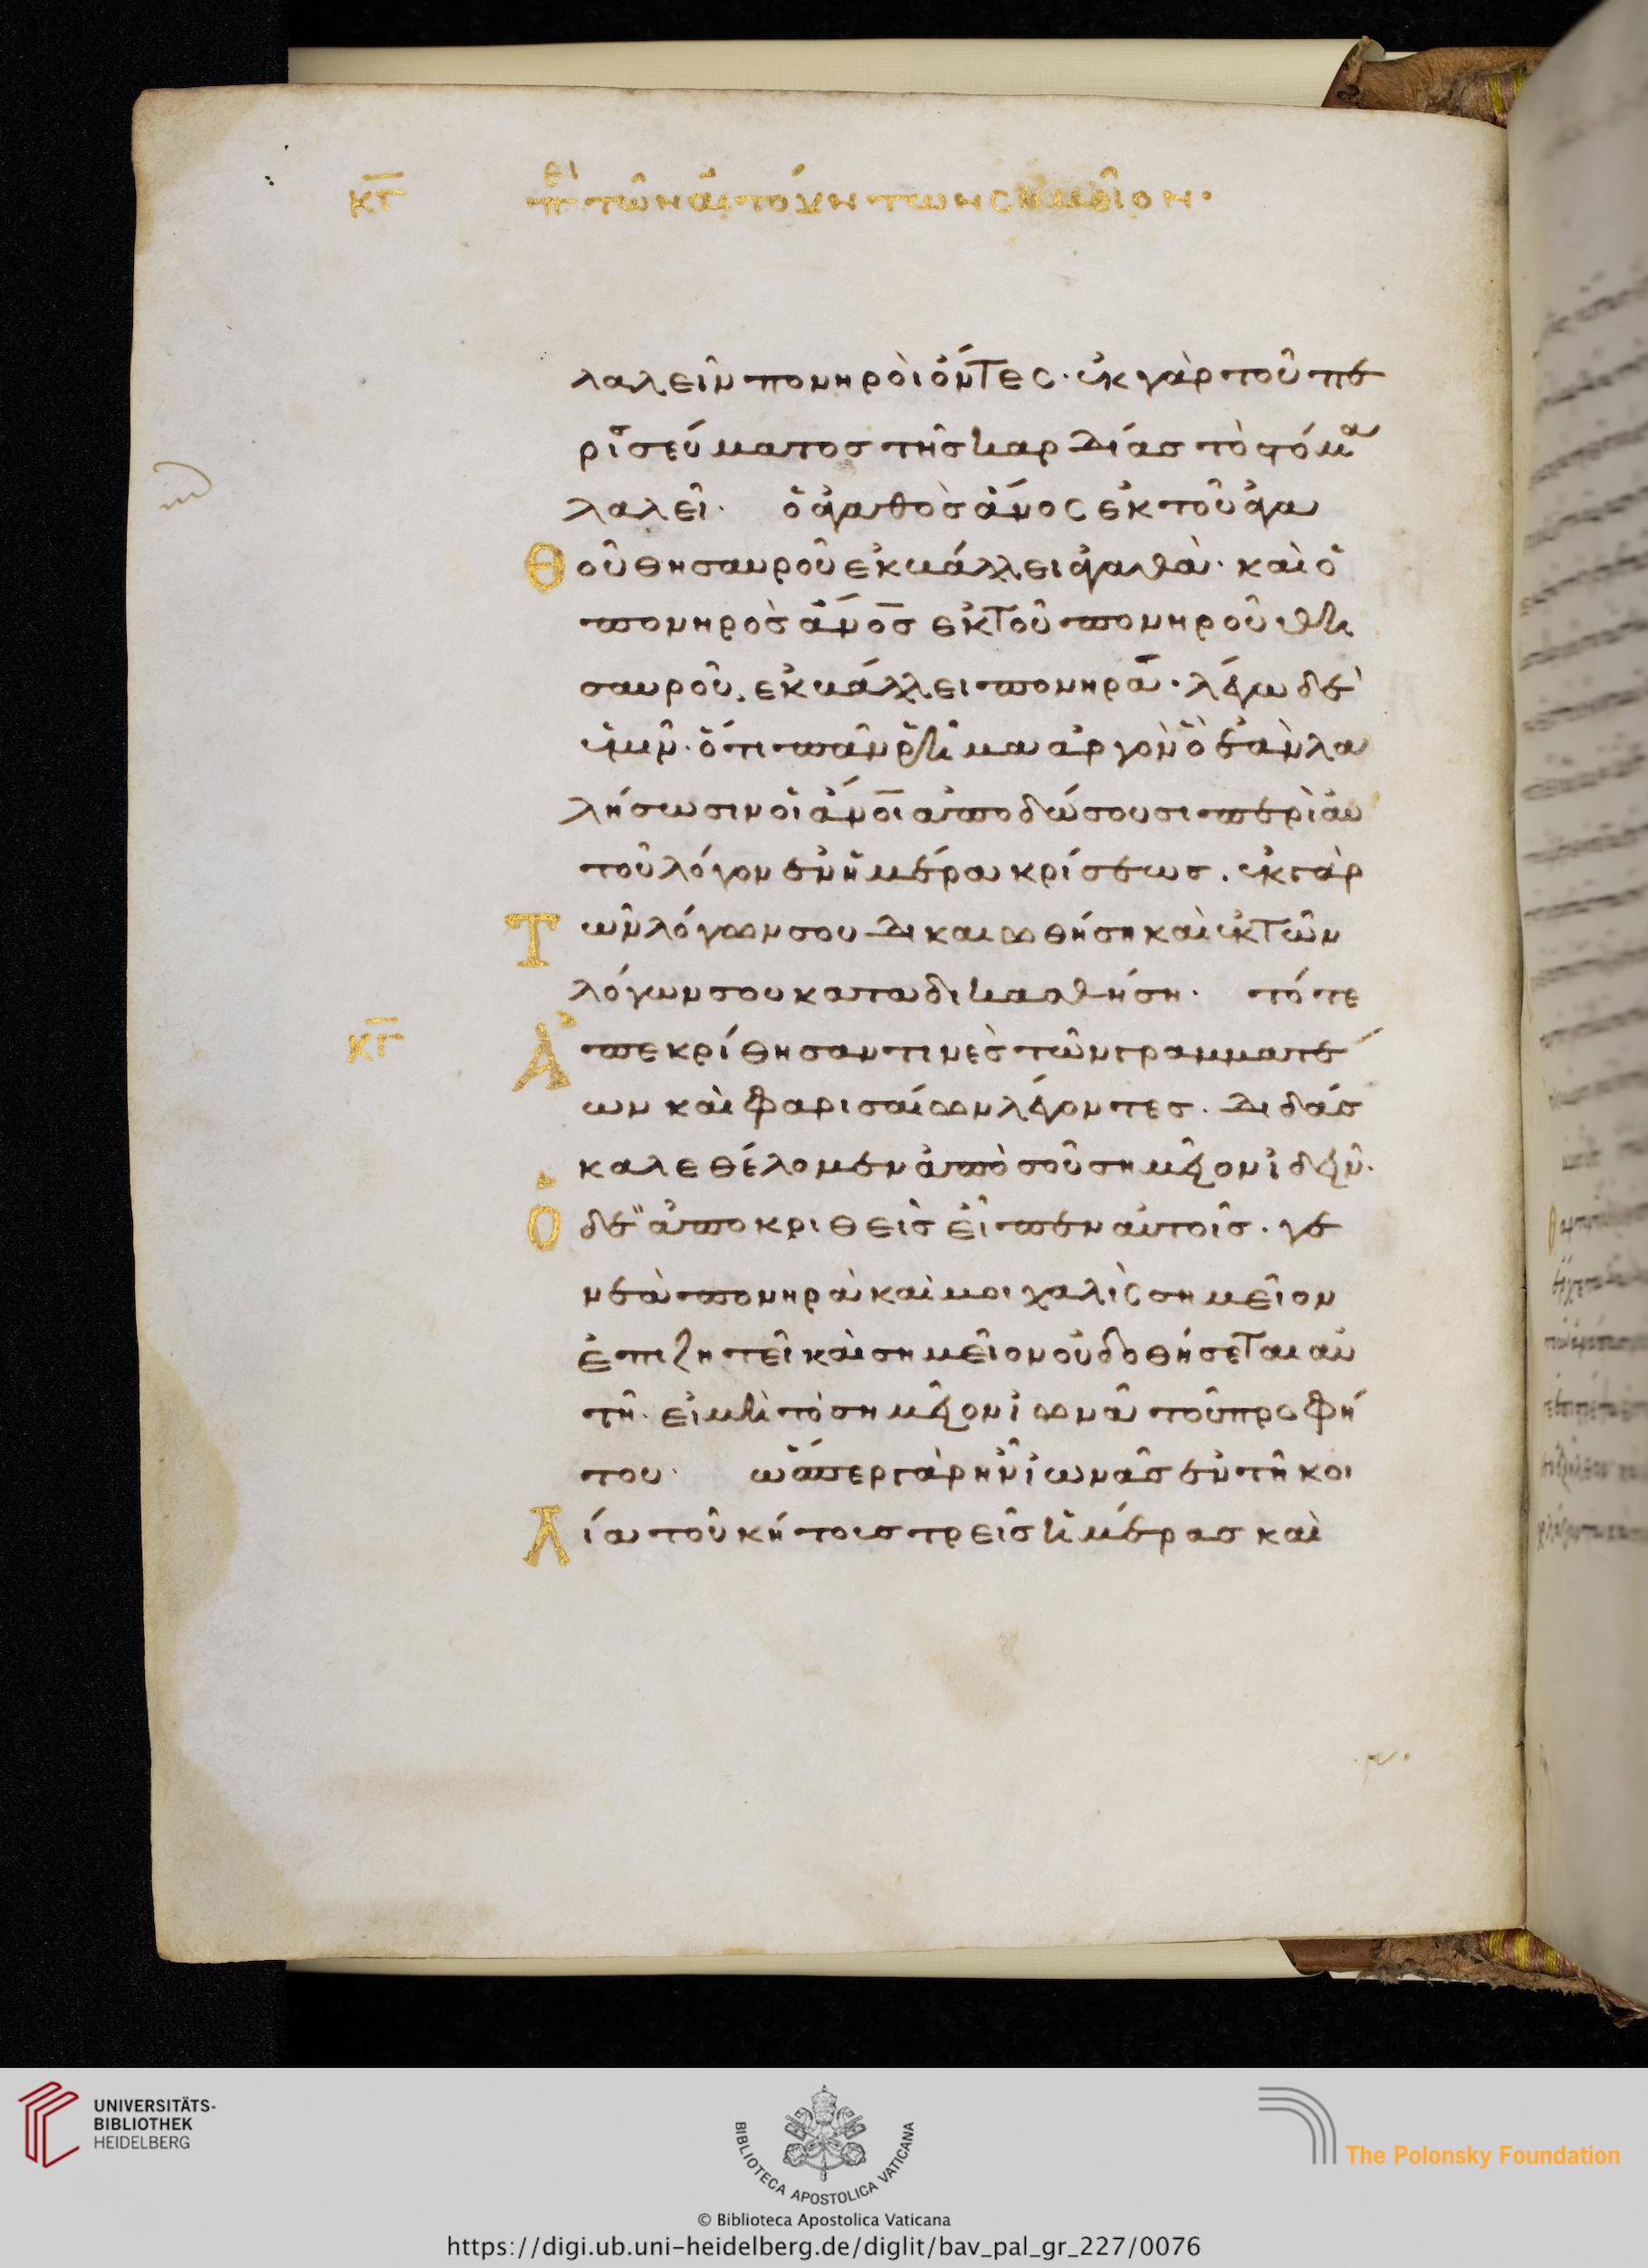 κγ περὶ τῶν αἰτούντων σημεῖον·
λαλεῖν πονηροὶ ὄντες· ἐκ γὰρ τοῦ πε
ρισσεύματος τῆς καρδίας τὸ στόμα
λαλεῖ· ὁ ἀγαθὸς ἄνος ἐκ τοῦ ἀγα
θοῦ θησαυροῦ ἐκβάλλει ἀγαθὰ· καὶ ὁ
πονηρὸς ἄνος ἐκ τοῦ πονηροῦ θη
σαυροῦ, ἐκβάλλει πονηρά· λέγω δὲ
ὑμῖν· ὅτι πᾶν ῥῆμα ἀργὸν ὃ ἐὰν λα
λήσωσιν οἱ ἄνοι ἀποδώσουσι περὶ αὐ
τοῦ λόγον ἐν ἡμέρα κρίσεως. ἐκ γὰρ
Τῶν λόγων σου δικαιωθήση καὶ ἐκ τῶν
λόγων σου καταδικασθήση· τότε
κγ Ἀπεκρίθησαν τινὲς τῶν γραμματέ
ων καὶ φαρισαίων λέγοντες. διδάσ
καλε θέλομεν ἀπὸ σοῦ σημεῖον ἰδεῖν.
Ὁ δὲ ἀποκριθεὶς εἶπεν αὐτοῖς. γε
νεὰ πονηρὰ καὶ μοιχαλὶς σημεῖον
ἐπιζητεῖ καὶ σημεῖον οὐ δοθήσεται αὐ
τῆ· εἰ μὴ τὸ σημεῖον ἰωνᾶ τοῦ προφή
του· ὥσπερ γὰρ ἦν ἰωνᾶς ἐν τῆ κοι
Λία τοῦ κήτους τρεῖς ἡμέρας καὶ
UNIVERSITÄTS-
BIBLIOTHEK
HEIDELBERG
BIBLIOTECA APOSTOLICA VATICANA
The Polonsky Foundation
© Biblioteca Apostolica Vaticana
https://digi.ub.uni-heidelberg.de/diglit/bav_pal_gr_227/0076